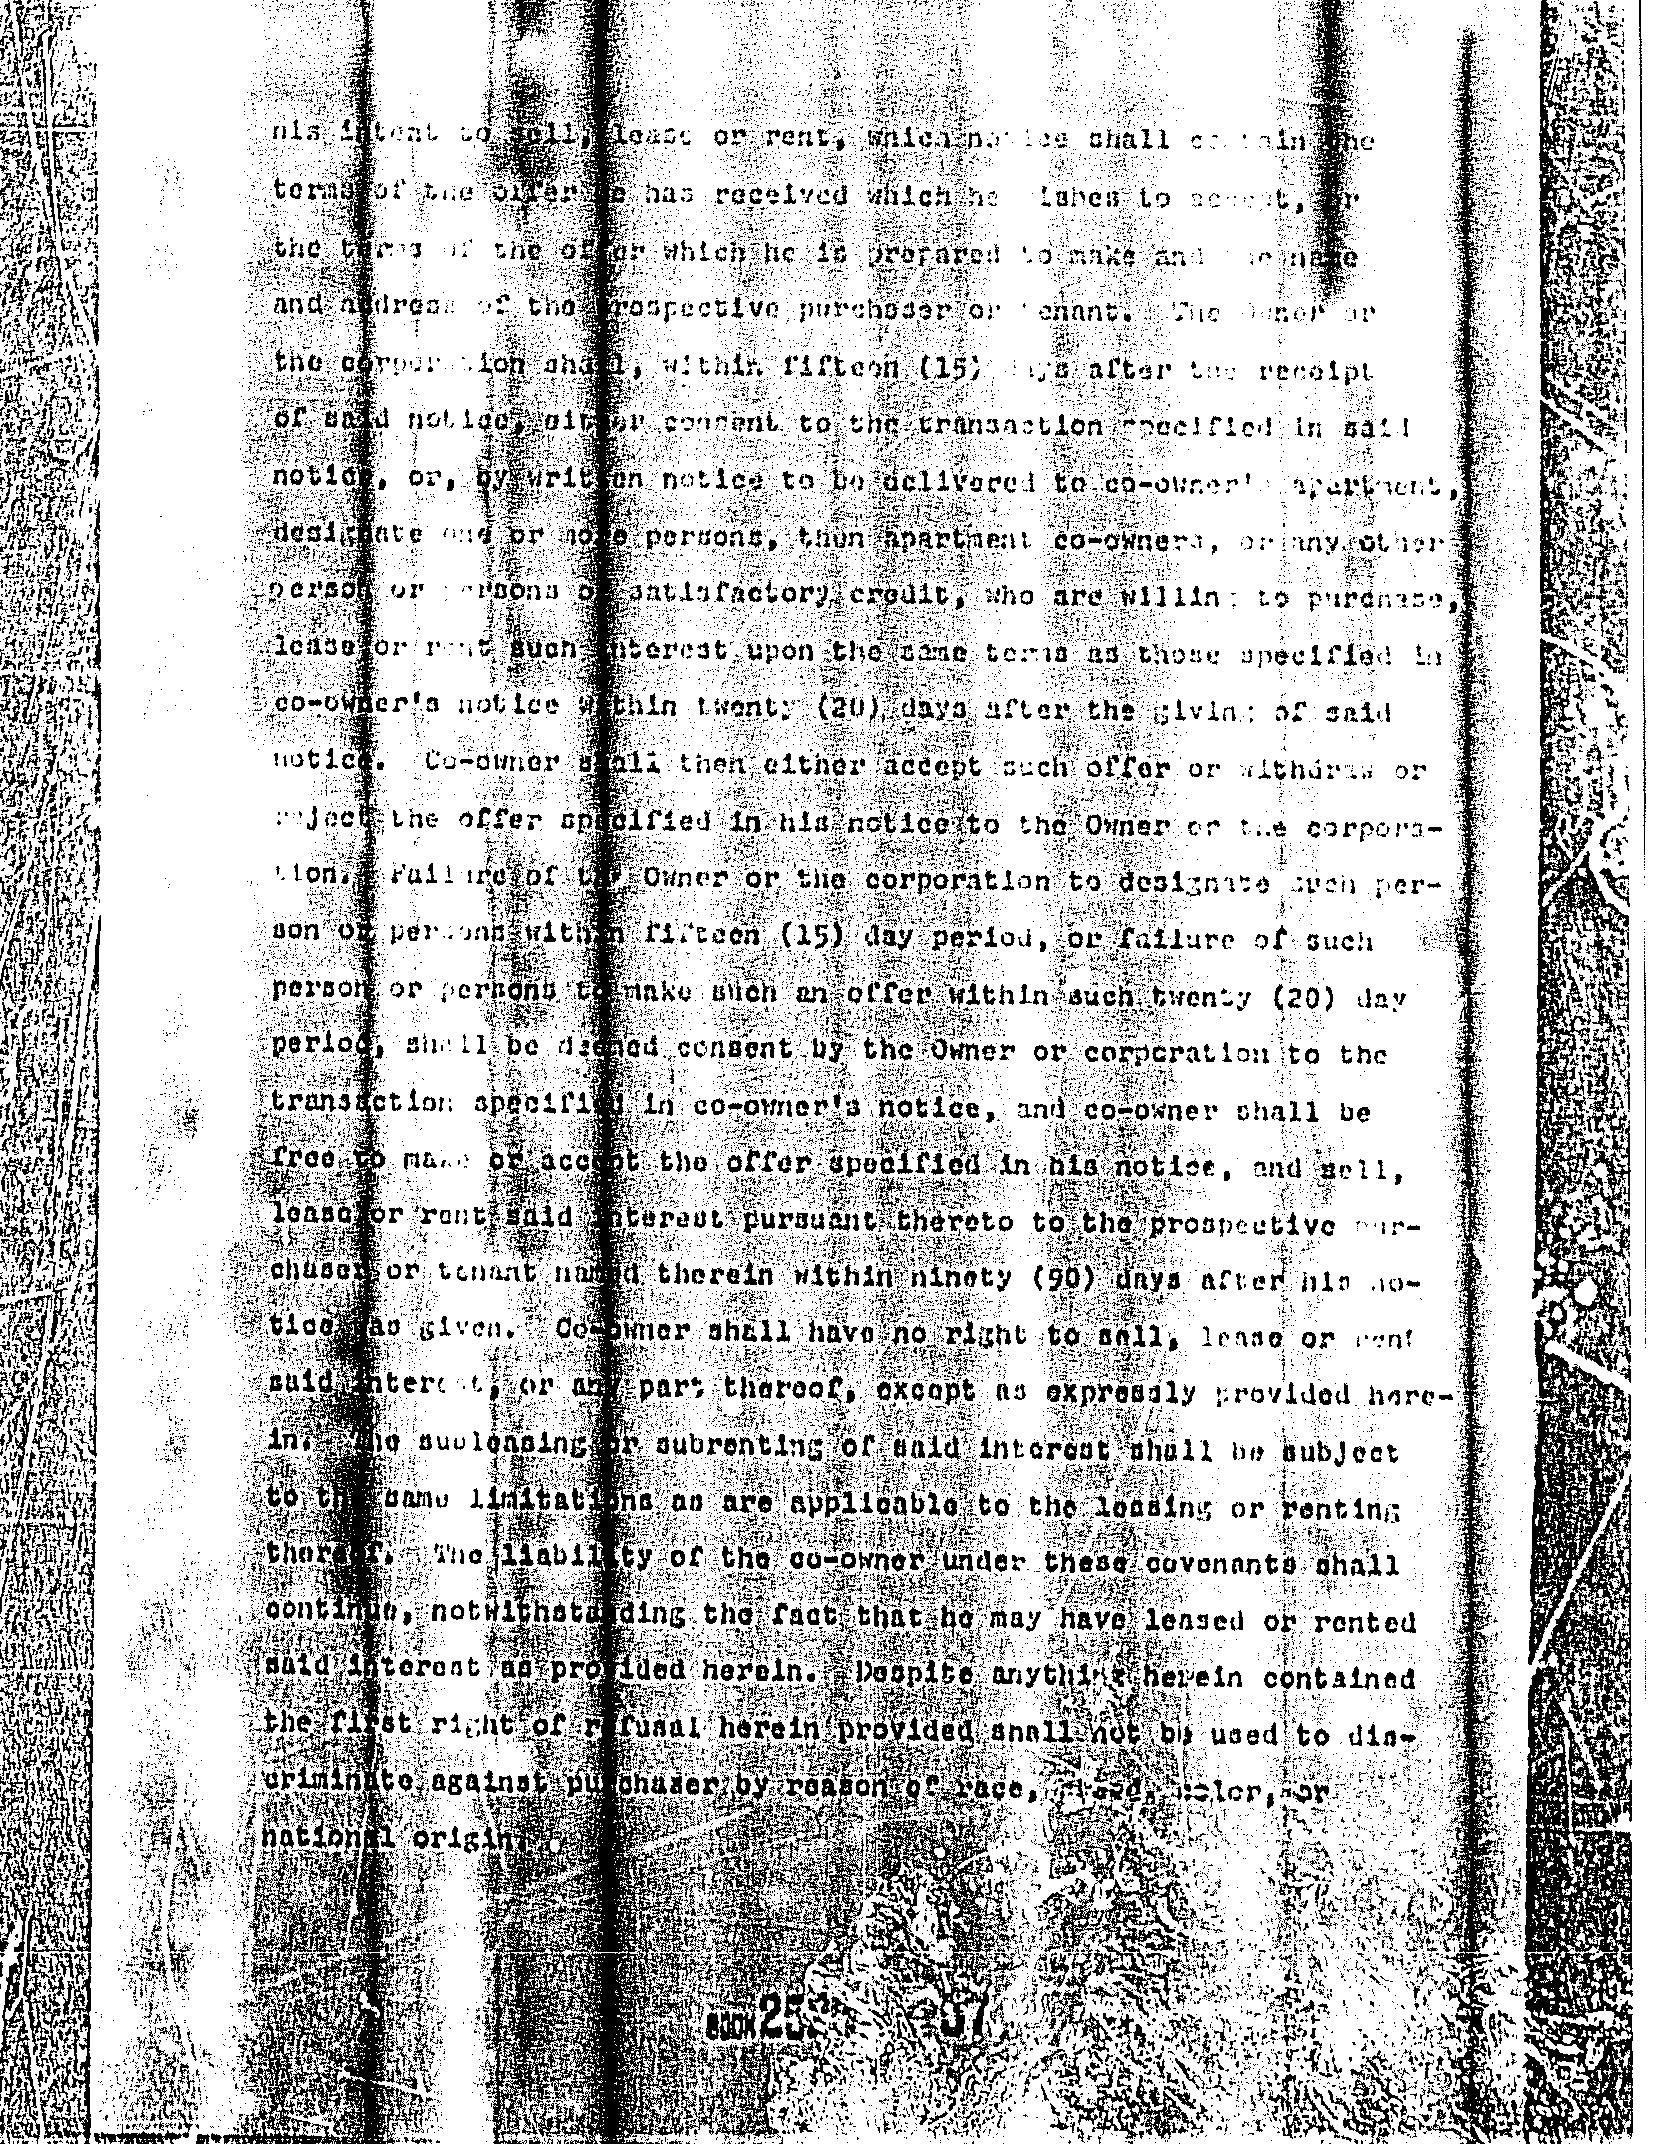 his intent to sell, lease or rent, which notice shall contain the
terms of the offer he has received which he wishes to accept, or
the terms of the offer which he is prepared to make and the name
and address of the prospective purchaser or tenant. The Owner or
the corporation shall, within fifteen (15) days after the receipt
of said notice, either consent to the transaction specified in said
notice, or, by written notice to be delivered to co-owner's apartment,
designate one or more persons, then apartment co-owners, or any other
person or persons of satisfactory credit, who are willing to purchase,
lease or rent such interest upon the same terms as those specified in
co-owner's notice within twenty (20) days after the giving of said
notice. Co-owner shall then either accept such offer or withdraw or
reject the offer specified in his notice to the Owner or the corpora-
tion. Failure of the Owner or the corporation to designate such per-
son or persons within fifteen (15) day period, or failure of such
person or persons to make such an offer within such twenty (20) day
period, shall be deemed consent by the Owner or corporation to the
transaction specified in co-owner's notice, and co-owner shall be
free to make or accept the offer specified in his notice, and sell,
lease or rent said interest pursuant thereto to the prospective pur-
chaser or tenant named therein within ninety (90) days after his no-
tice was given. Co-owner shall have no right to sell, lease or rent
said interest, or any part thereof, except as expressly provided here-
in. The subleasing or subrenting of said interest shall be subject
to the same limitations as are applicable to the leasing or renting
thereof. The liability of the co-owner under these covenants shall
continue, notwithstanding the fact that he may have leased or rented
said interest as provided herein. Despite anything herein contained
the first right of refusal herein provided shall not be used to dis-
criminate against purchaser by reason of race, creed, color, or
national origin.
BOOK